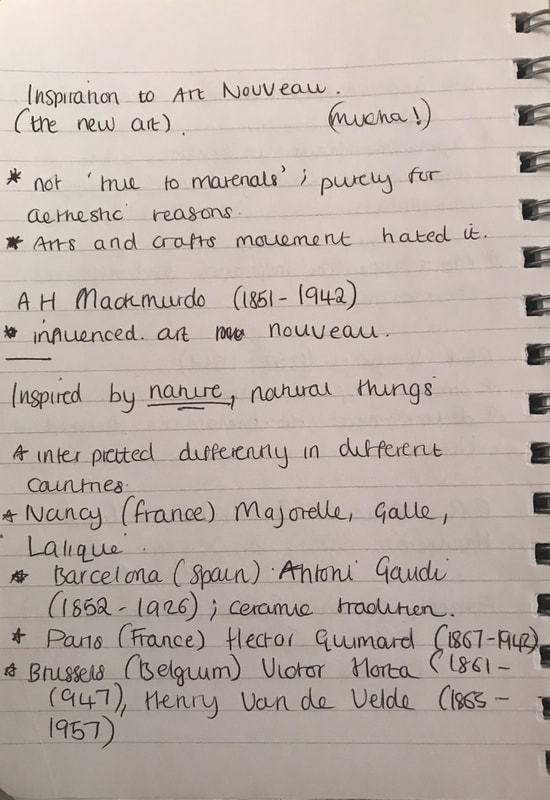 Inspiration to Art Nouveau.
(the new art). (mucha!)
* not 'true to materials'; purely for
aethestic reasons.
* Arts and crafts movement hated it.
A H Mackmurdo (1851-1942)
* influenced art nouveau.
Inspired by nature, natural things
* interpretted differently in different
countries.
* Nancy (France) Majorelle, Galle,
Lalique.
* Barcelona (Spain) Antoni Gaudi
(1852-1926); ceramic tradition.
* Paris (France) Hector Guimard (1867-1942)
* Brussels (Belgium) Victor Horta (1861-
1947), Henry Van de Velde (1863-
1957)